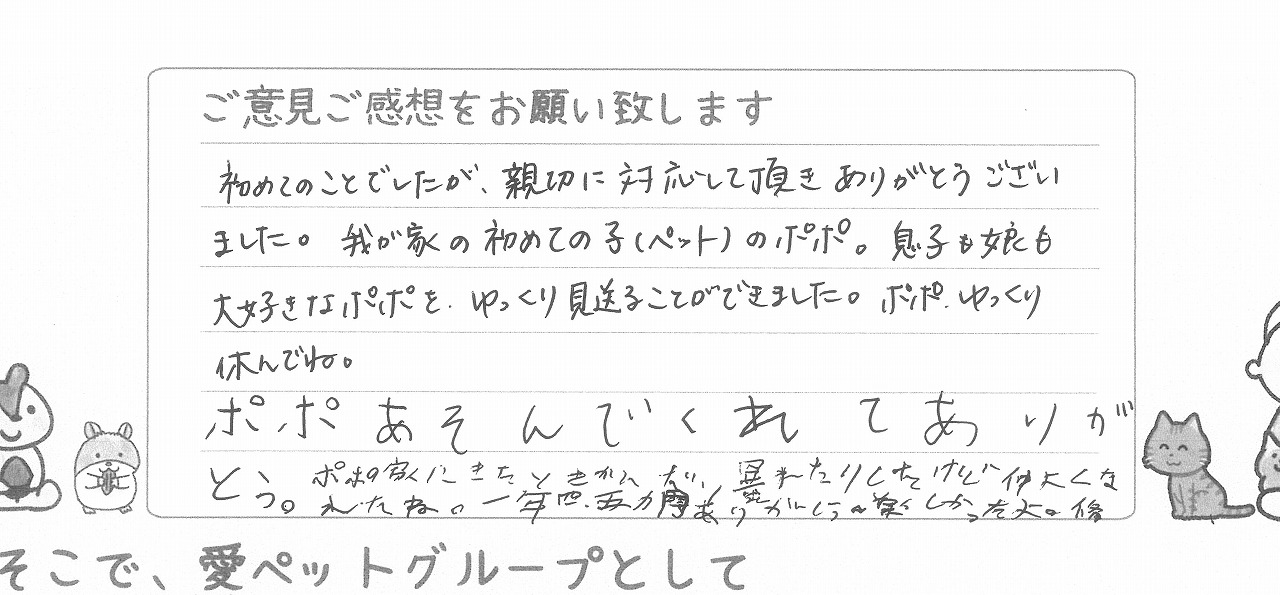 ご意見ご感想をお願い致します
初めてのことでしたが、親切に対応して頂きありがとうござい
ました。我が家の初めての子(ペット)のポポ。息子も娘も
大好きなポポを、ゆっくり見送ることができました。ポポ、ゆっくり
休んでね。
ポポあそんでくれてありが
とう。ポポの家にきたときから
れたね。一年四、五カ月間ありがとう
そこで、愛ペットグループとして